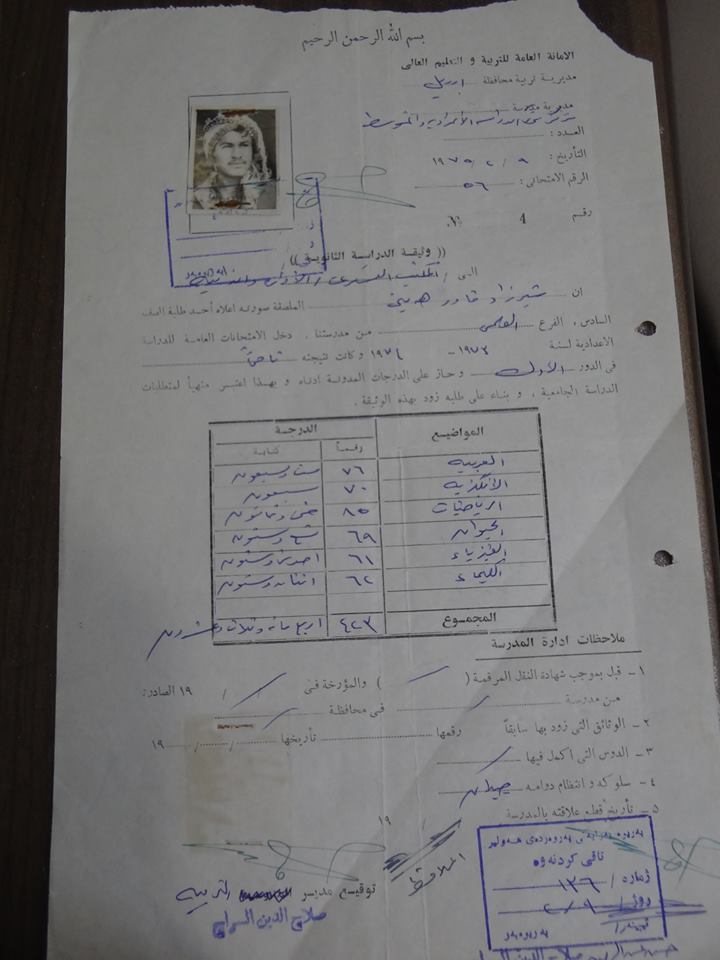 بسم الله الرحمن الرحيم
الامانة العامة للتربية و التعليم العالى
مديرية تربية محافظة اربيل
مديرية مدرسة
العدد :
التأريخ : ٩ / ٢ / ١٩٧٥
الرقم الامتحانى : ٥٦
رقم 4 №.
(( وثيقة الدراسة الثانوية ))
الى /
ان شيرزاد قادر الملصقة صورته اعلاه أحد طلبة الصف
السادس ، الفرع العلمي من مدرستنا ، دخل الامتحانات العامة للدراسة
الاعدادية لسنة ١٩٧٣ - ١٩٧٤ وكانت نتيجته ناجحاً
فى الدور الأول وحاز على الدرجات المدونة ادناه و بهذا اعتبر متهيأ لمتطلبات
الدراسة الجامعية ، و بناء على طلبه زود بهذه الوثيقة .
المواضيع الدرجة
رقماً كتابة
العربيه ٧٦ ست وسبعون
الانكليزيه ٧٠ سبعون
الرياضيات ٨٥ خمس وثمانون
الحيوان ٦٩ تسع وستون
الفيزياء ٦١ احدى وستون
الكيمياء ٦٢ اثنتان وستون
المجموع ٤٢٣ اربع مائه وثلاث وعشرون
ملاحظات ادارة المدرسة
١ ـ قبل بموجب شهادة النقل المرقمة ( ) والمؤرخة فى / / ١٩ الصادرة
من مدرسة فى محافظة
٢ ـ الوثائق التى زود بها سابقاً رقمها تأريخها / / ١٩
٣ ـ الدوس التى اكمل فيها
٤ ـ سلوكه و انتظام دوامه جيدان
٥ ـ تأريخ قطع علاقته بالمدرسة / / ١٩
توقيع مدير التربيه
صلاح الدين السراج
تاقى كردنه وه
ژماره / ١٣٦
روژ / ٩ / ٢